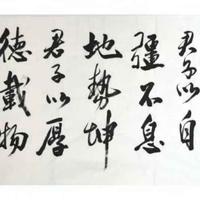 君子以自
疆不息
地勢坤
君子以厚
德載物